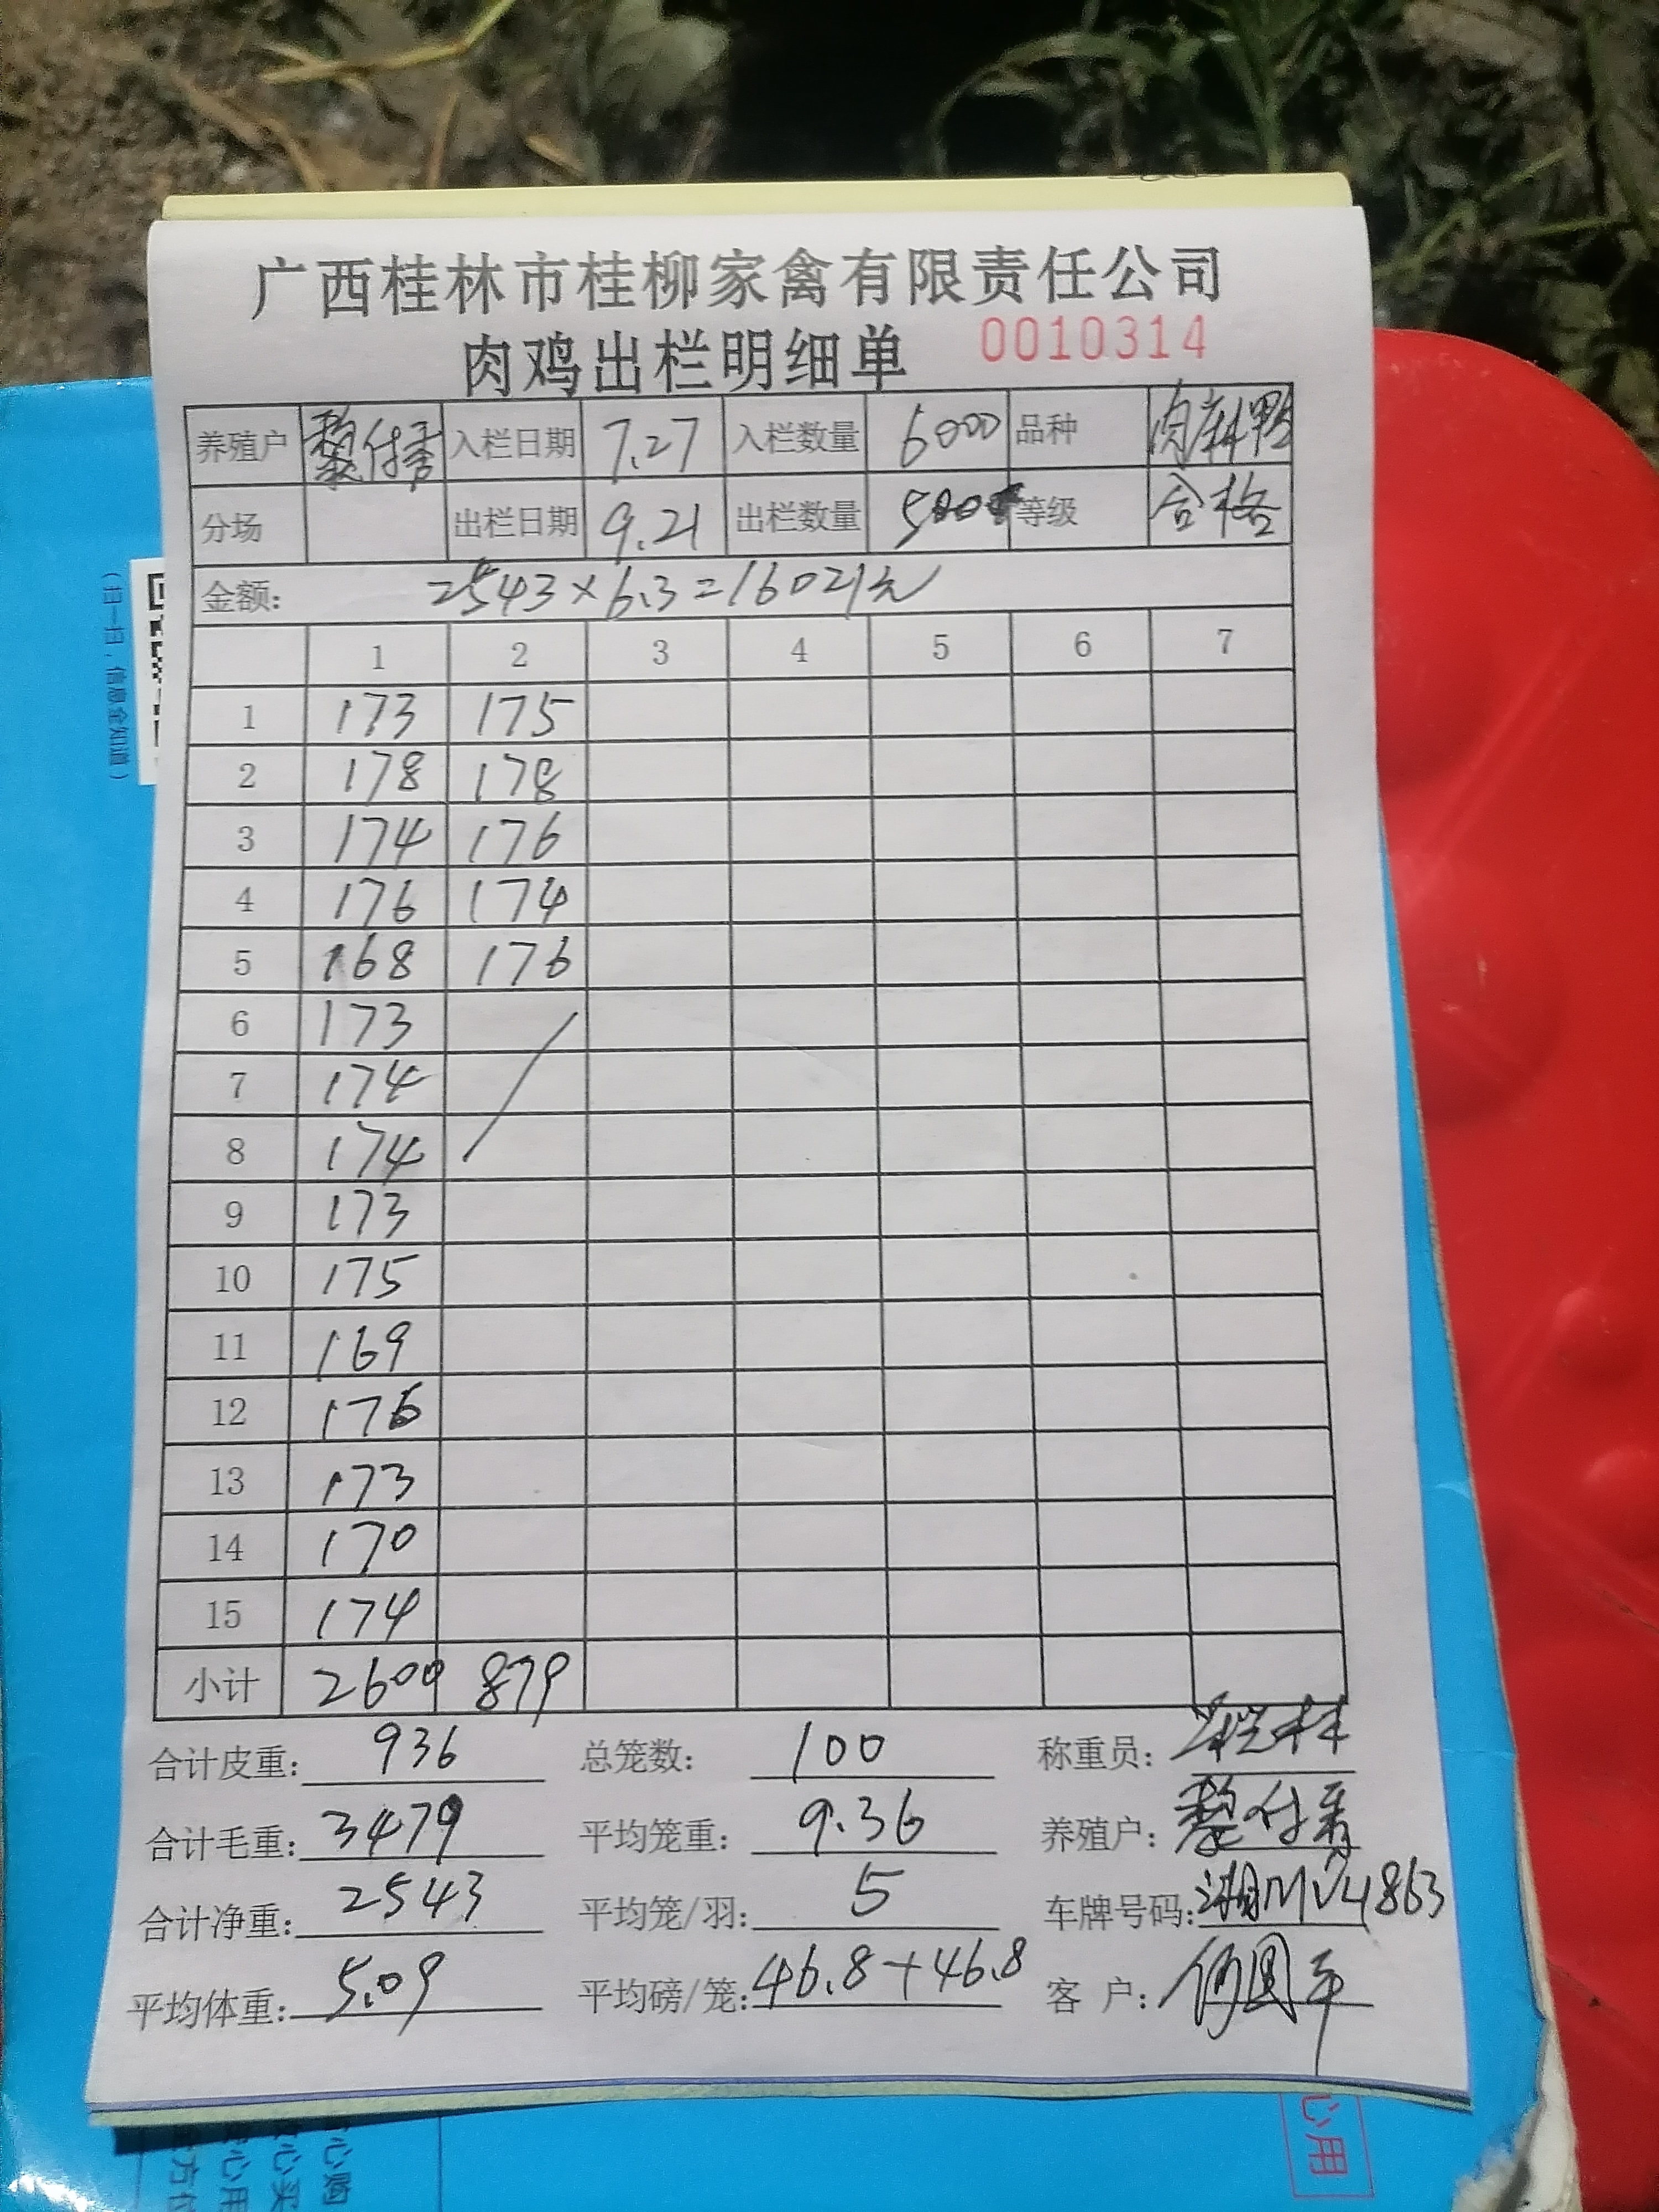 广西桂林市桂柳家禽有限责任公司
肉鸡出栏明细单 0010314
养殖户 黎付秀 入栏日期 7.27 入栏数量 6000 品种 肉麻鸭
分场 出栏日期 9.21 出栏数量 500 等级 合格
金额: 2543×6.3=16021元
1 2 3 4 5 6 7
1 173 175
2 178 178
3 174 176
4 176 174
5 168 176
6 173
7 174
8 174
9 173
10 175
11 169
12 176
13 173
14 170
15 174
小计 2600 879
合计皮重: 936 总笼数: 100 称重员:
合计毛重: 3479 平均笼重: 9.36 养殖户: 黎付秀
合计净重: 2543 平均笼/羽: 5 车牌号码: 湘MV4863
平均体重: 5.09 平均磅/笼: 46.8+46.8 客 户:
(扫一扫,信息全知道)
心用